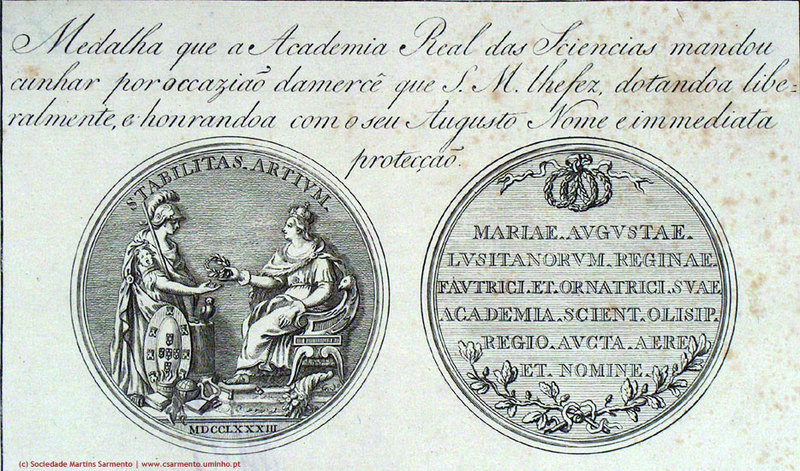 Medalha que a Academia Real das Sciencias mandou
cunhar por occazião damercê que S. M. lhefez, dotandoa libe=
ralmente, e honrandoa com o seu Augusto Nome e immediata
protecção.
STABILITAS. ARTIVM.
MDCCLXXXIII
MARIAE. AVGVSTAE.
LVSITANORVM. REGINAE.
FAVTRICI. ET. ORNATRICI. SVAE
ACADEMIA. SCIENT. OLISIP.
REGIO. AVCTA. AERE
ET. NOMINE.
(c) Sociedade Martins Sarmento | www.csarmento.uminho.pt